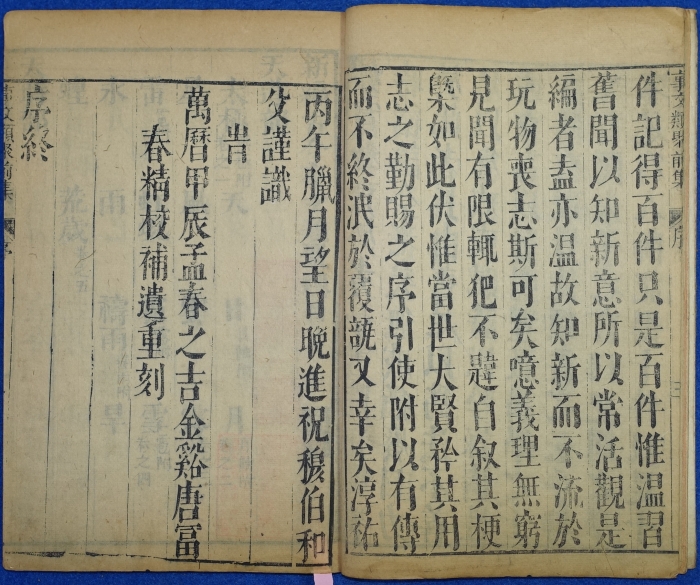 事文類聚前集 序
件記得百件只是百件惟温習
舊聞以知新意所以常活觀是
編者盍亦温故知新而不流於
玩物喪志斯可矣噫義理無窮
見聞有限輒犯不韙自叙其梗
槩如此伏惟當世大賢矜其用
志之勤賜之序引使附以有傳
而不終泯於覆瓿又幸矣淳祐
丙午臘月望日晚進祝穆伯和
父謹識
旹
萬曆甲辰孟春之吉金谿唐冨
春精校補遺重刻
序終
事文類聚前集 序